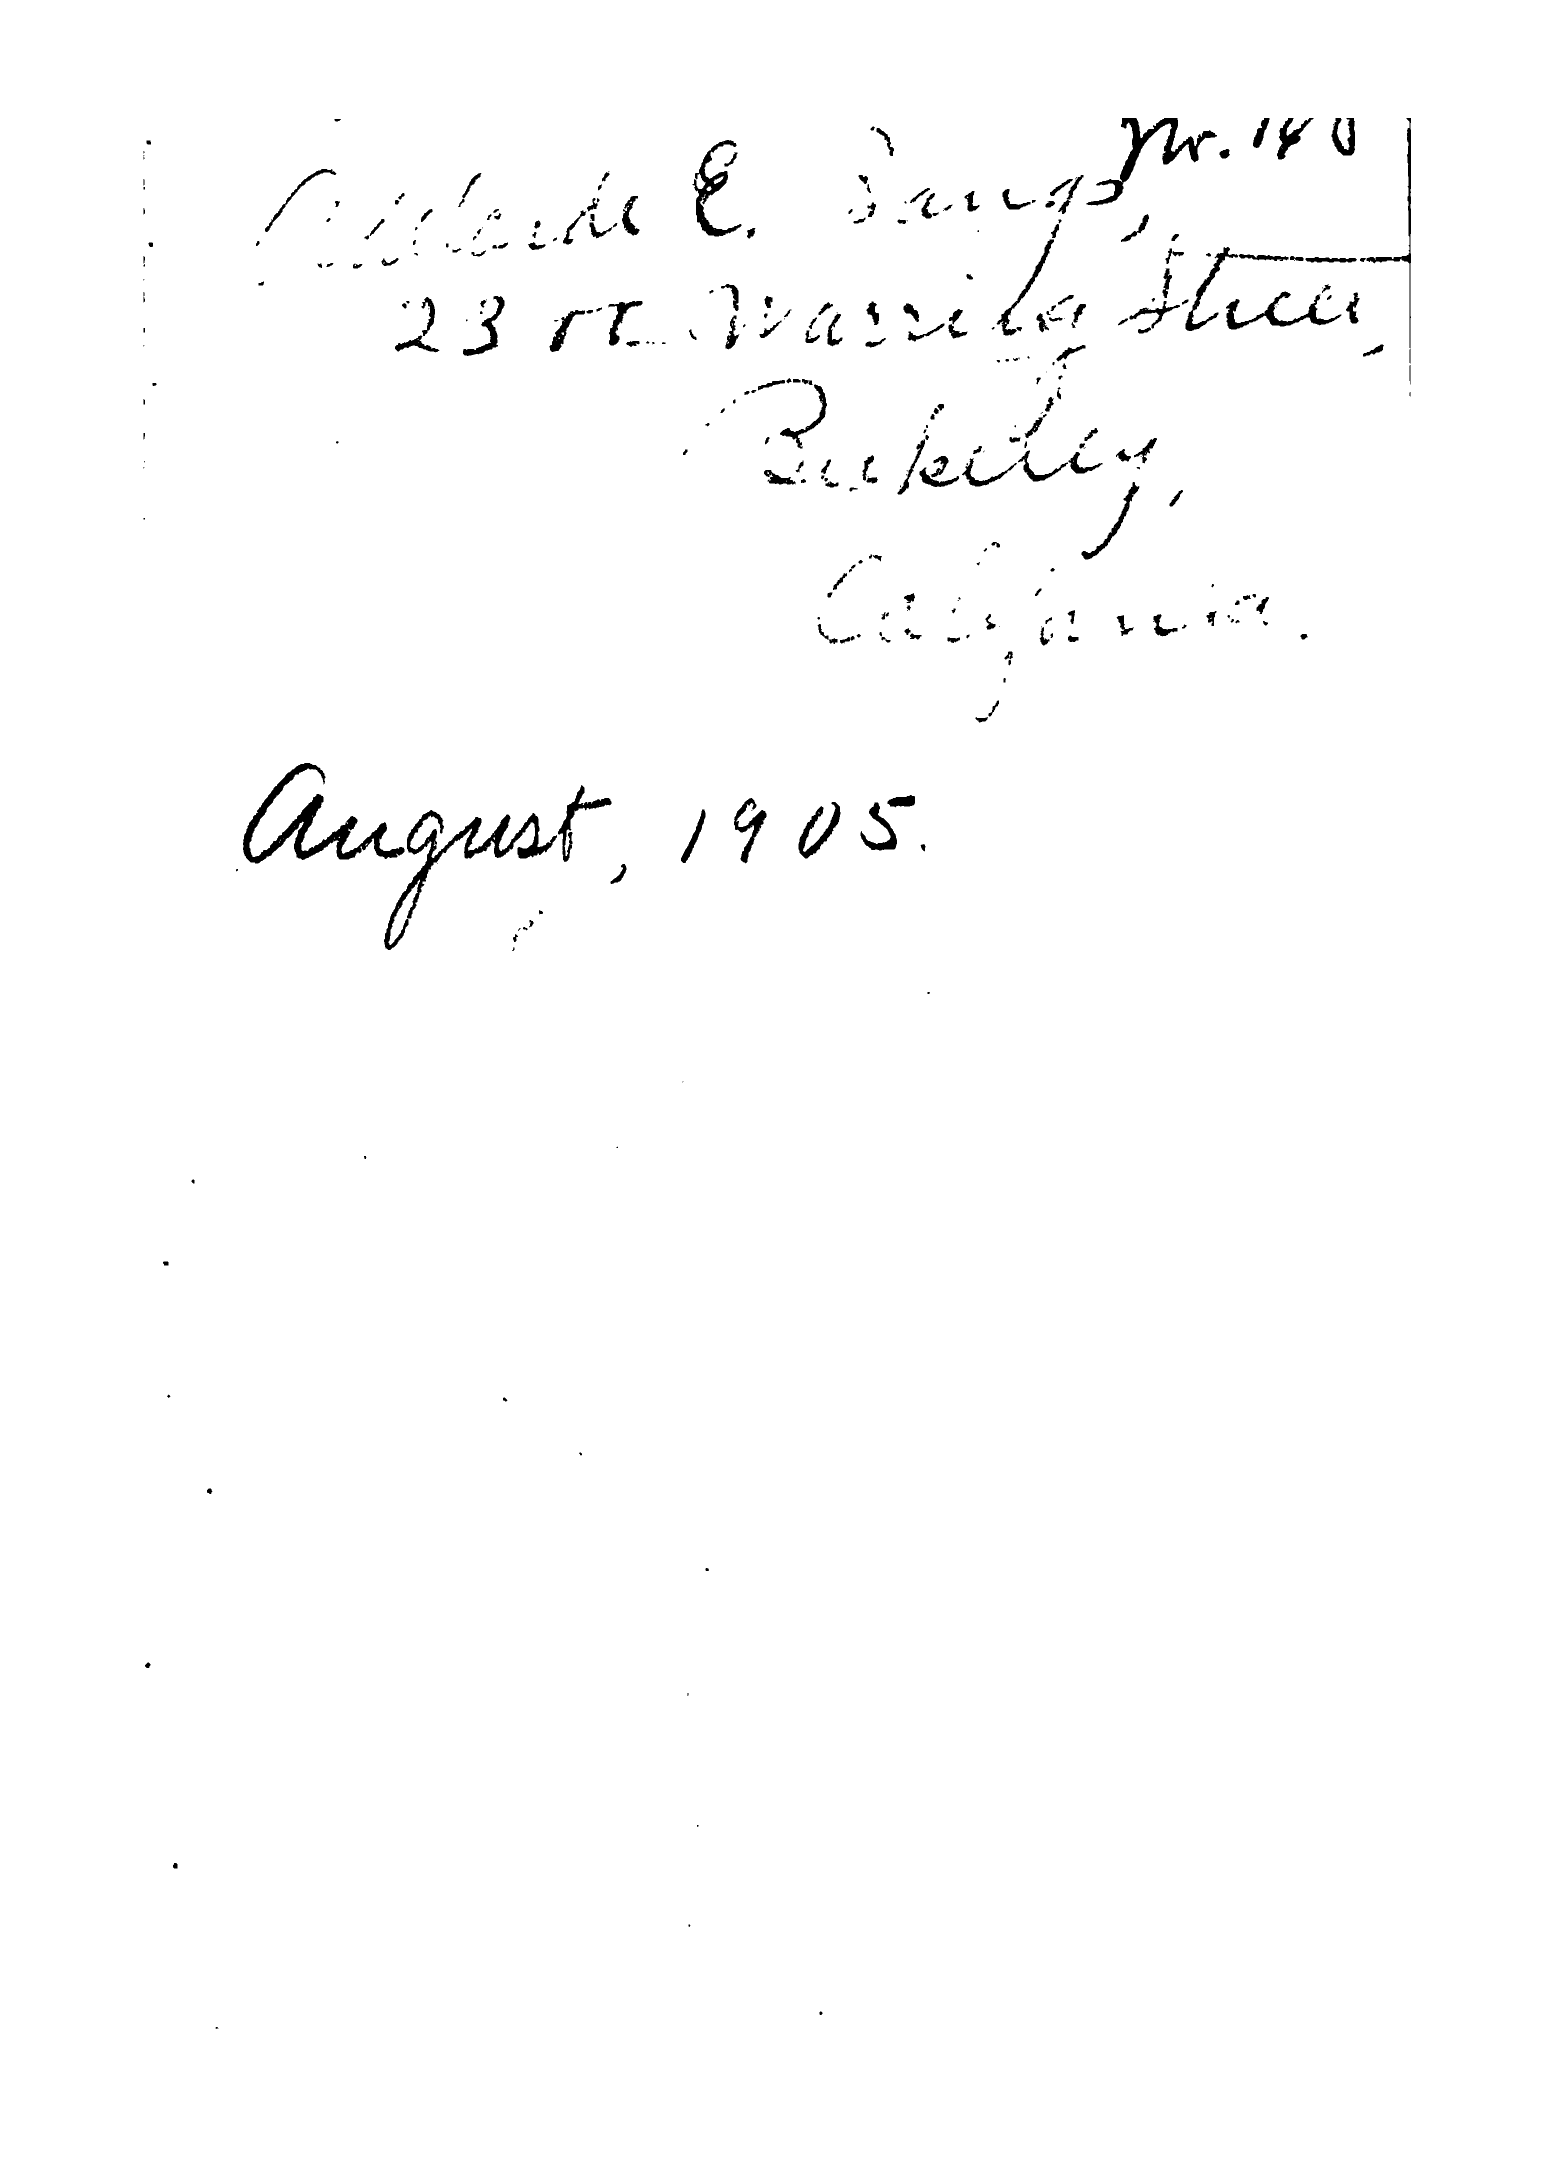 Nr. 140
Adelaide E. Bangs,
Warring Street,
Berkeley,
California.
August, 1905.